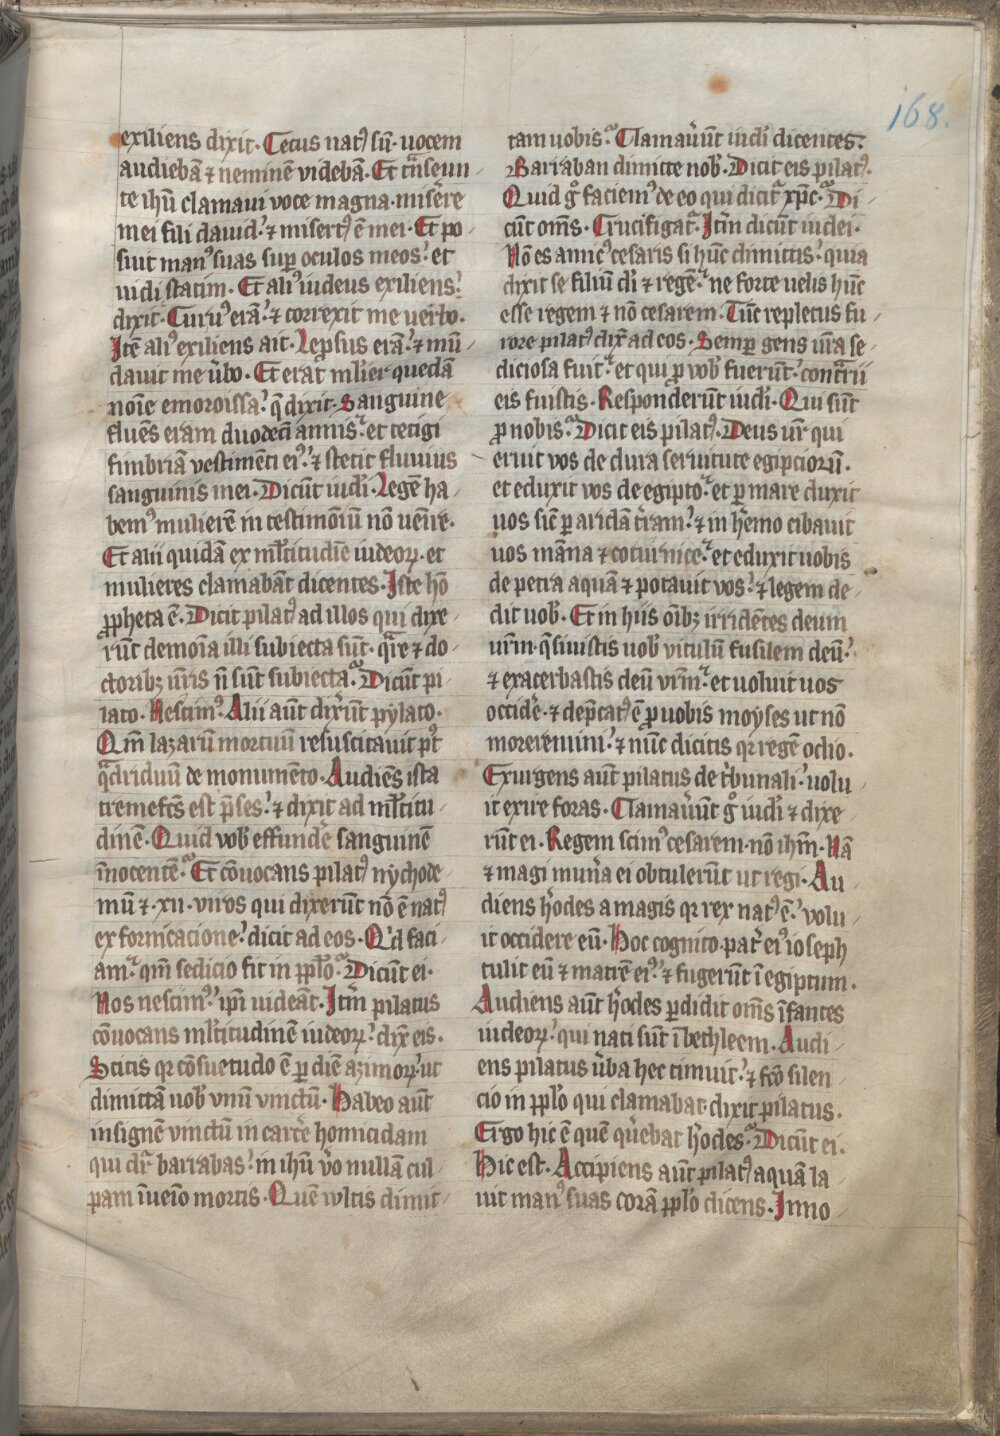 168.
exiliens dixit. Cecus natꝰ sū. uocem
audiebā ⁊ neminē videbā. Et tⁿseun
te ihū clamaui voce magna. miserere
mei fili dauid. ⁊ misertꝰ ē mei. Et po
suit manꝰ suas suꝑ oculos meos. et
uidi statim. Et aliꝰ iudeus exiliens.
dixit. Curuꝰ erā. ⁊ correxit me uerbo.
Itē aliꝰ exiliens ait. Leprsus erā. ⁊ mū
dauit me ūbo. Et erat mlier quedā
noīe emoroissa. q̄ dixit. Sanguine
fluēs eram duodecī annis. et tetigi
fimbriā vestimēti eiꝰ. ⁊ stetit fluuius
sanguinis mei. Dicūt iudi. Legē ha
bemꝰ mulierē in testimoīū nō uēire.
Et alii quidā ex mltitudīe iudeoꝝ. et
mulieres clamabāt dicentes. Iste hō
ꝓpheta ē. Dicit pilatꝰ ad illos qui dixe
rūt demoīa illi subiecta sūt. qͣre ⁊ do
ctoribꝫ uīris ñ sūnt subiecta. Dicūt pi
lato. Nescimꝰ. Alii aūt dixͬūt pylato.
Qm̄ lazarū mortuū resuscitauit pꝰt
qͣdriduū de monumēto. Audiēs ista
tremefcs̄ est p̄ses. ⁊ dixit ad mltitu
dinē. Quid vob̄ effundere sanguinē
īnocentē. Et cōuocans pilatꝰ nychode
mū ⁊ .xii. viros qui dixerūt nō ē natꝰ
ex fornicacione. dicit ad eos. Qͥd faci
am. qm̄ sedicio fit in pplō. Dicūt ei.
Nos nescimꝰ. ipī uideāt. Itm̄ pilatus
cōuocans mltitudinē iudeoꝝ. dix̄ eis.
Scitis qr cōsuetudo ē ꝑ diē azimoꝝ. ut
dimittā uob̄ vnū vinctū. Habeo aūt
insignē vinctū in carcere homicidam
qui dr̄ barrabas. in ihū ūo nullā cul
pam īueīo mortis. Quē wltis dimit
tam uobis. Clamauͬūt iudi dicentes.
Barraban dimitte nob̄. Dicit eis pilatꝰ.
Quid gͦ faciemꝰ de eo qui dicitͬ xp̄c. Di
cūt om̄s. Crucifigatͬ. Itm̄ dicūt iudei.
Nō es amicꝰ cesaris si hūc dimittis. quia
dixit se filiū di ⁊ regē. ne forte uelis hūc
esse regem ⁊ nō cesarem. Tūc repletus fu
rore pilatꝰ dix̄ ad eos. Semꝑ gens uīra se
diciosa fuit. et qui ꝓ vob̄ fuerūt. contͣrii
eis fuistis. Responderūt iudi. Qui sūt
ꝓ nobis. Dicit eis pilatꝰ. Deus ur̄ qui
eruit vos de dura seruitute egipciorū.
et eduxit vos de egipto. et ꝑ mare duxit
uos sic̄ ꝑ aridā tͬram. ⁊ in hͬemo cibauit
uos māna ⁊ coturnice. et eduxit uobis
de petra aquā ⁊ potauit vos. ⁊ legem de
dit uob̄. Et in hiis oībꝫ irridētes deum
urm̄. q̄siuistis uob̄ vitulū fusilem deū.
⁊ exacerbastis deū vrm̄. et uoluit uos
occidͬe. ⁊ dep̄catꝰ ē ꝓ uobis moyses ut nō
moreremini. ⁊ nūc dicitis qr regē odio.
Exurgens aūt pilatus de tͥbunali. uolu
it exire foras. Clamauͬūt gͦ iudi ⁊ dixe
rūt ei. Regem scimꝰ cesarem. nō ihm̄. Nā
⁊ magi munͬa ei obtulerūt ut regi. Au
diens hͬodes a magis qr rex natꝰ ē. volu
it occidere eū. Hoc cognito. patͬ eiꝰ ioseph
tulit eū ⁊ matrē eiꝰ. ⁊ fugerūt ī egiptum.
Audiens aūt hͬodes ꝑdidit om̄s īfantes
iudeoꝝ. qui nati sūt ī bethleem. Audi
ens pilatus ūba hec timuit. ⁊ fcō silen
cio in pplō qui clamabat. dixit pilatus.
Ergo hic ē quē querebat hͬodes. Dicūt ei.
Hic est. Accipiens aūt pilatꝰ aquā la
uit manꝰ suas corā pplō dicens. Inno